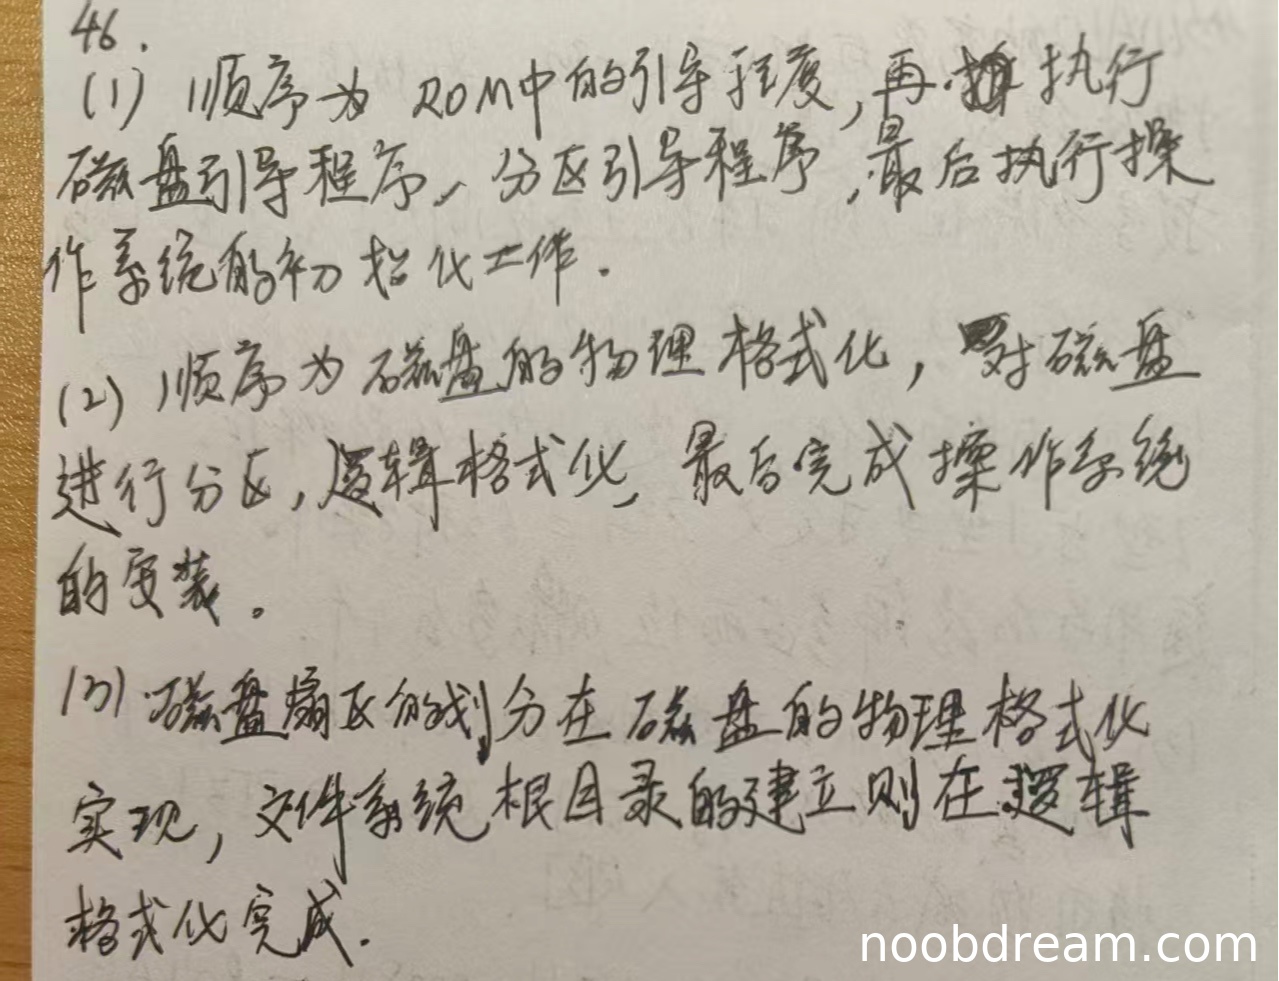 46.
(1) 顺序为 ROM中的引导程度,再 执行
磁盘引导程序、分区引导程序,最后执行操
作系统的初始化工作.
(2) 顺序为磁盘的物理格式化, 对磁盘
进行分区,逻辑格式化,最后完成操作系统
的安装。
(3) 磁盘扇区的划分在磁盘的物理格式化
实现,文件系统根目录的建立则在逻辑
格式化完成.
noobdream.com